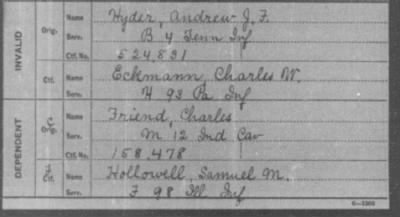 INVALID
Orig. Name Hyder, Andrew J. F.
Serv. B 4 Tenn Inf
Ctf. No. 524.831
Ctf. Name Eckmann, Charles W.
Serv. H 93 Pa Inf
DEPENDENT
C Orig. Name Friend, Charles
Serv. M 12 Ind Cav
Ctf. No. 158.478
Ctf. Name Hollowell, Samuel M.
Serv. F 98 Ill Inf